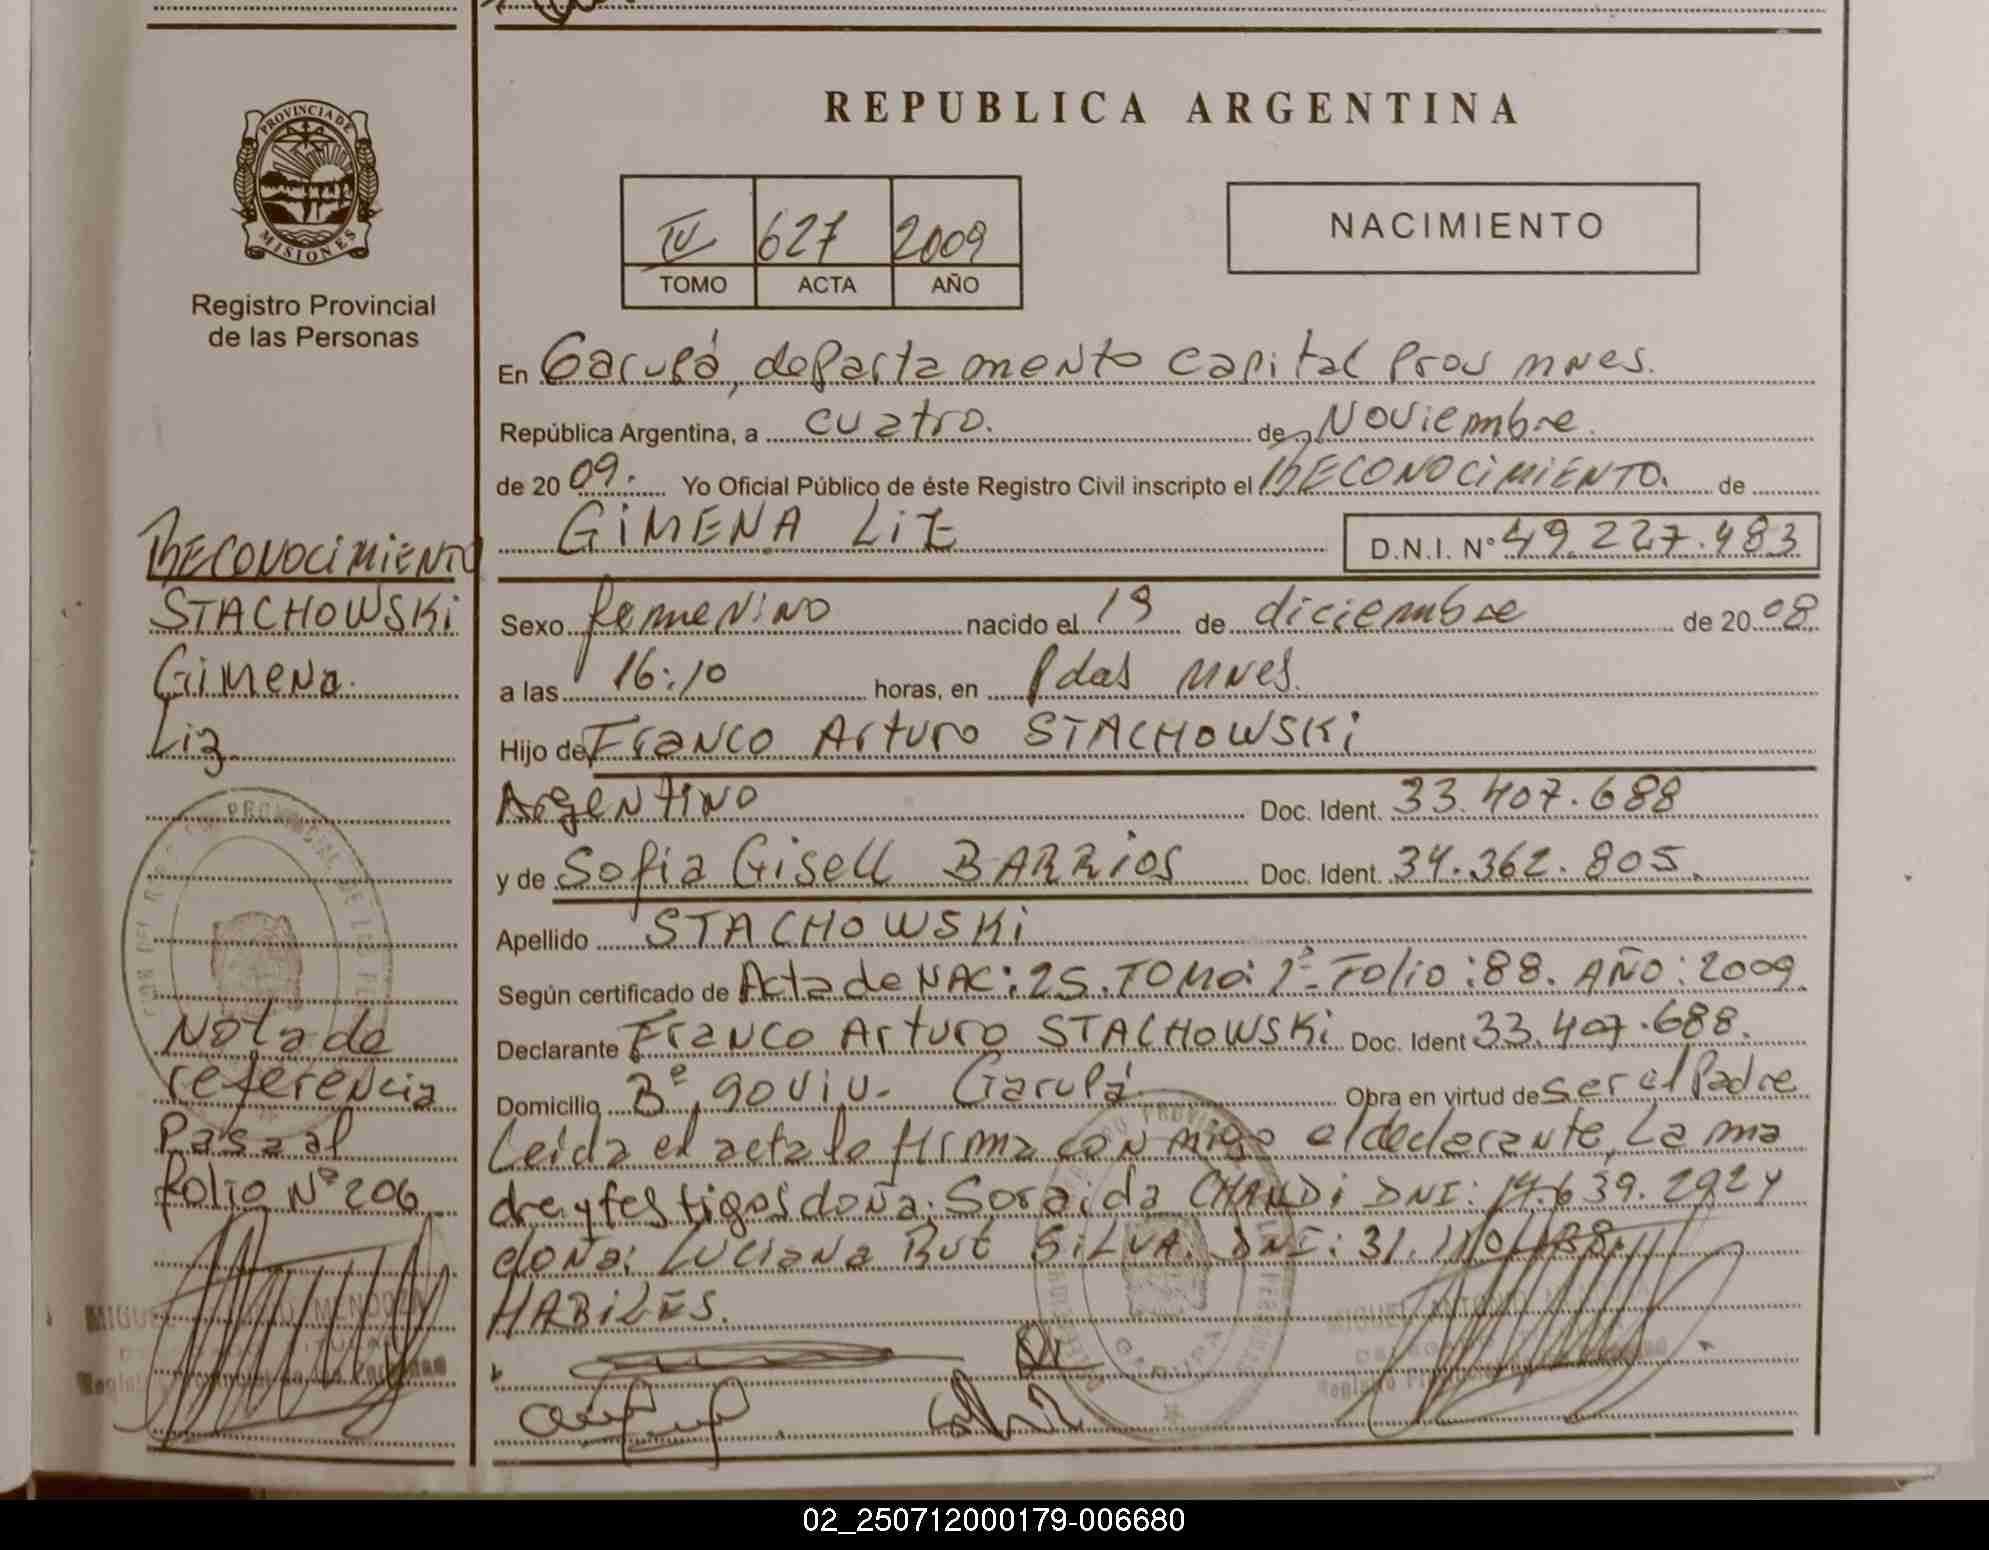 REPUBLICA ARGENTINA
PROVINCIA DE
MISIONES
Registro Provincial
de las Personas
IV 627 2009
TOMO ACTA AÑO
NACIMIENTO
En Garupá, departamento capital Prov mnes.
República Argentina, a cuatro. de Noviembre.
de 2009. Yo Oficial Público de éste Registro Civil inscripto el RECONOCIMIENTO. de
GIMENA LIZ D.N.I. N° 49.227.483
Sexo femenino nacido el 19 de diciembre de 2008.
a las 16:10 horas, en Pdas mnes.
Hijo de Franco Arturo STACHOWSKi
Argentino Doc. Ident. 33.407.688
y de Sofia Gisell BARRiOS Doc. Ident. 34.362.805.
Apellido STACHOWSKi
Según certificado de Acta de NAC: 25. TOMO: 1º- Folio: 88. AÑO: 2009.
Declarante Franco Arturo STACHOWSKi Doc. Ident 33.407.688.
Domicilio Bº 90 viv. Garupá Obra en virtud de ser el Padre
Leida el acta la firma con migo el declarante, La ma
dre y testigos doña: Soraida CHANDi DNI: 14.639.292 y
doña: Luciana Rut SiLVA. DNI: 31.
HABiLES.
RECONOCiMiENTO
STACHOWSKi
Gimena
Liz
Nota de
referencia
Pasa al
folio Nº 206
MIGUEL ANTONIO MENDOZA
Registro Provincial de las Personas
GARUPA
02_250712000179-006680